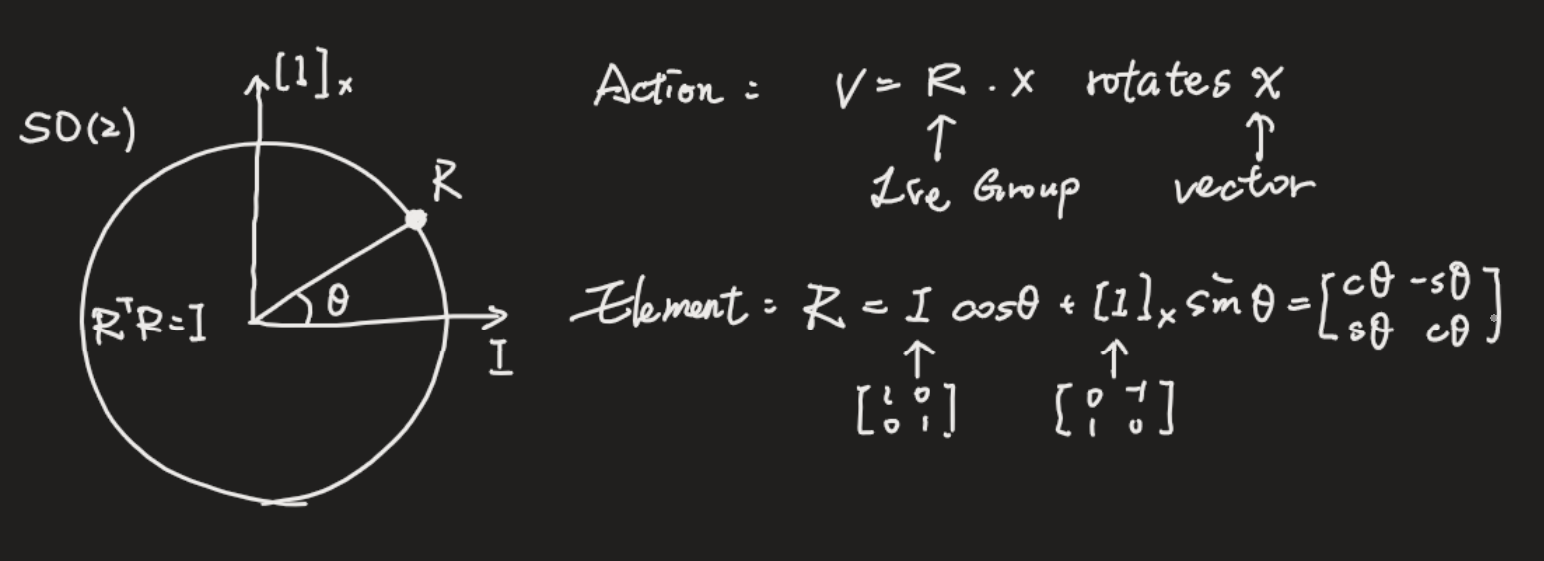 [1]ₓ
SO(2)
R
θ
RᵀR=I
I
Action: V = R . x rotates x
↑ ↑
Lie Group vector
Element: R = I cosθ + [1]ₓ sinθ = [cθ -sθ
sθ cθ]
↑ ↑
[1 0 [0 -1
0 1] 1 0]